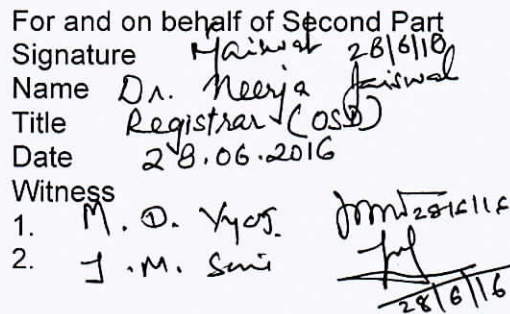 For and on behalf of Second Part
Signature Jaiswal 28/6/16
Name Dr. Neerja Jaiswal
Title Registrar (OSD)
Date 28.06.2016
Witness
1. M. D. Vyas. 28/6/16
2. J. M. Soni
28/6/16